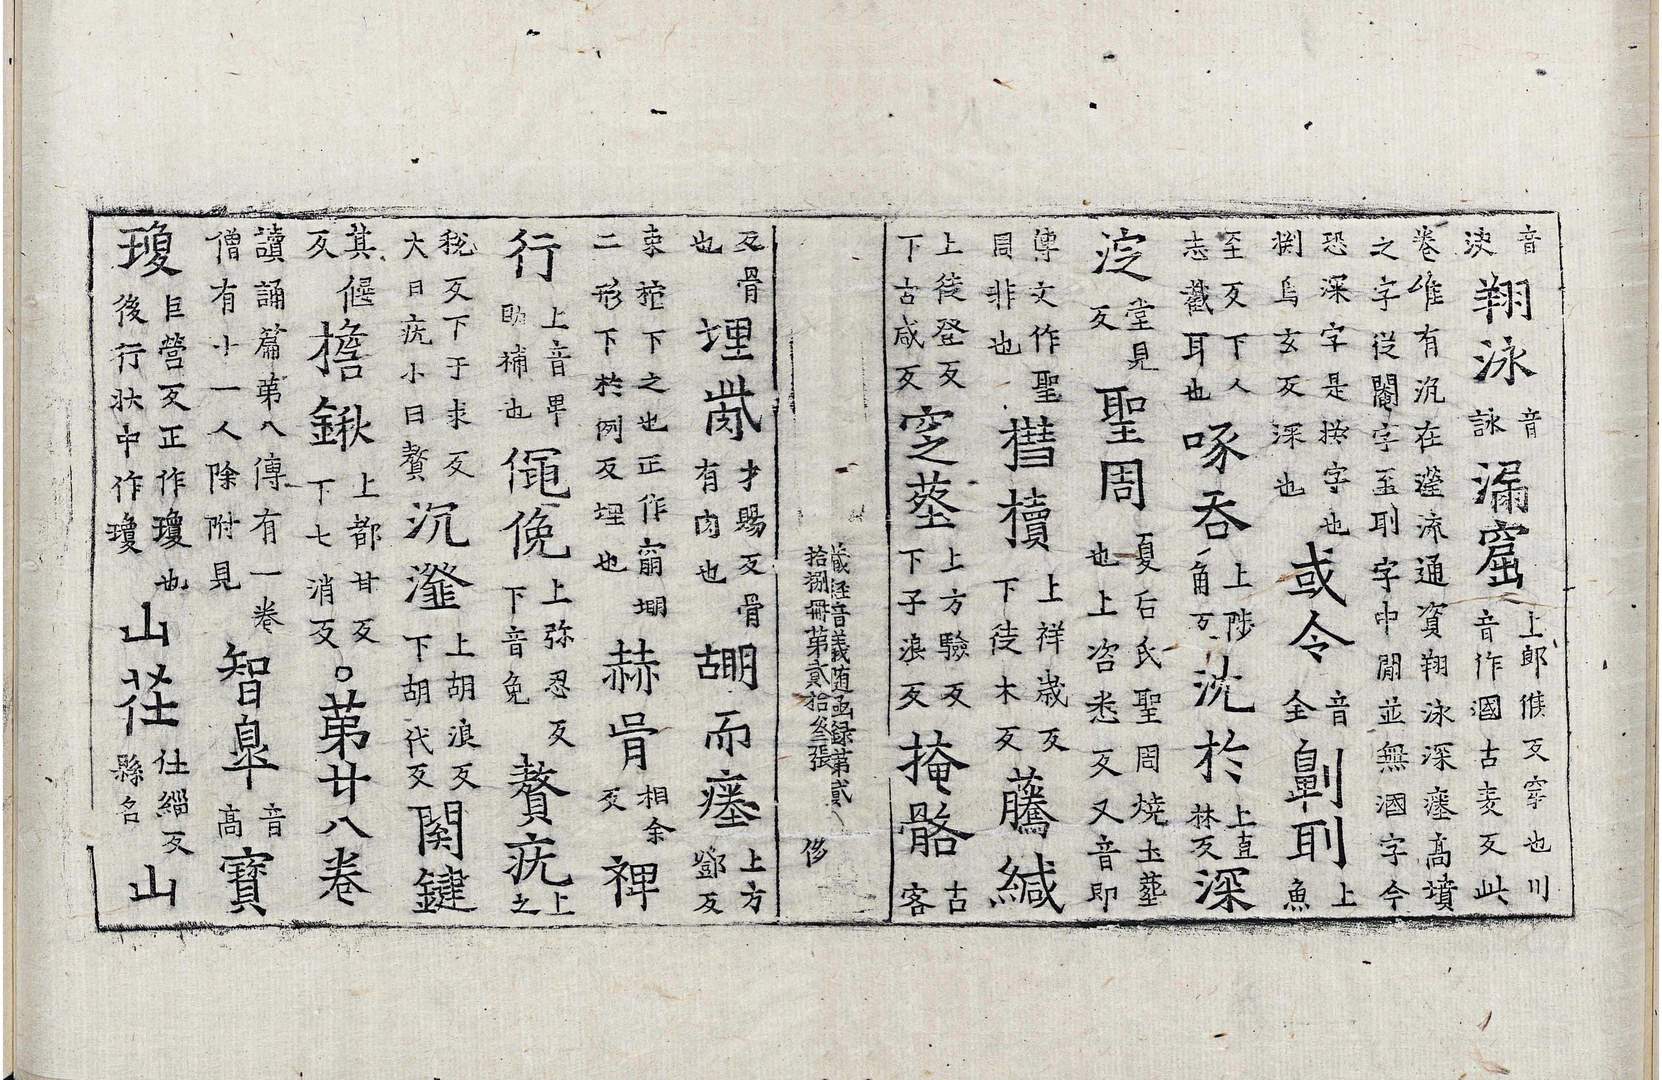 音浃翔泳音詠漏窟上郎侯反穿也川音作溷古麦反此
卷唯有汎在瀅流通資翔泳深瘞高墳之字從閹字至刵字中間並無溷字今
恐深字是挍字也捌烏玄反深也或令音全劓刵上魚
至反下人志截耳也啄吞上陟角反沈於上直林反深
淀堂見反聖周夏后氏聖周燒土葬也上咨悉反又音即
傳文作聖周非也槥櫝上祥歲反下徒木反藤緘
上徒登反下古咸反窆塟上方驗反下子浪反掩骼古客
藏經音義随函録第貳拾捌冊第貳拾叁張 侈
反骨也埋胔才賜反骨有肉也堋而瘞上方鄧反
束棺下之也正作窮堋二形下於例反埋也赫胥相余反裨
行上音畢助補也僶俛上弥忍反下音免贅疣上之
稅反下于求反大曰疣小曰贅沉瀣上胡浪反下胡代反関鍵
其偃反檐鍬上都甘反下七消反○第廿八卷
讀誦篇第八傳有一卷僧有十一人除附見智皐音高寶
瓊巨營反正作瓊也後行狀中作瓊山茌仕緇反縣名山